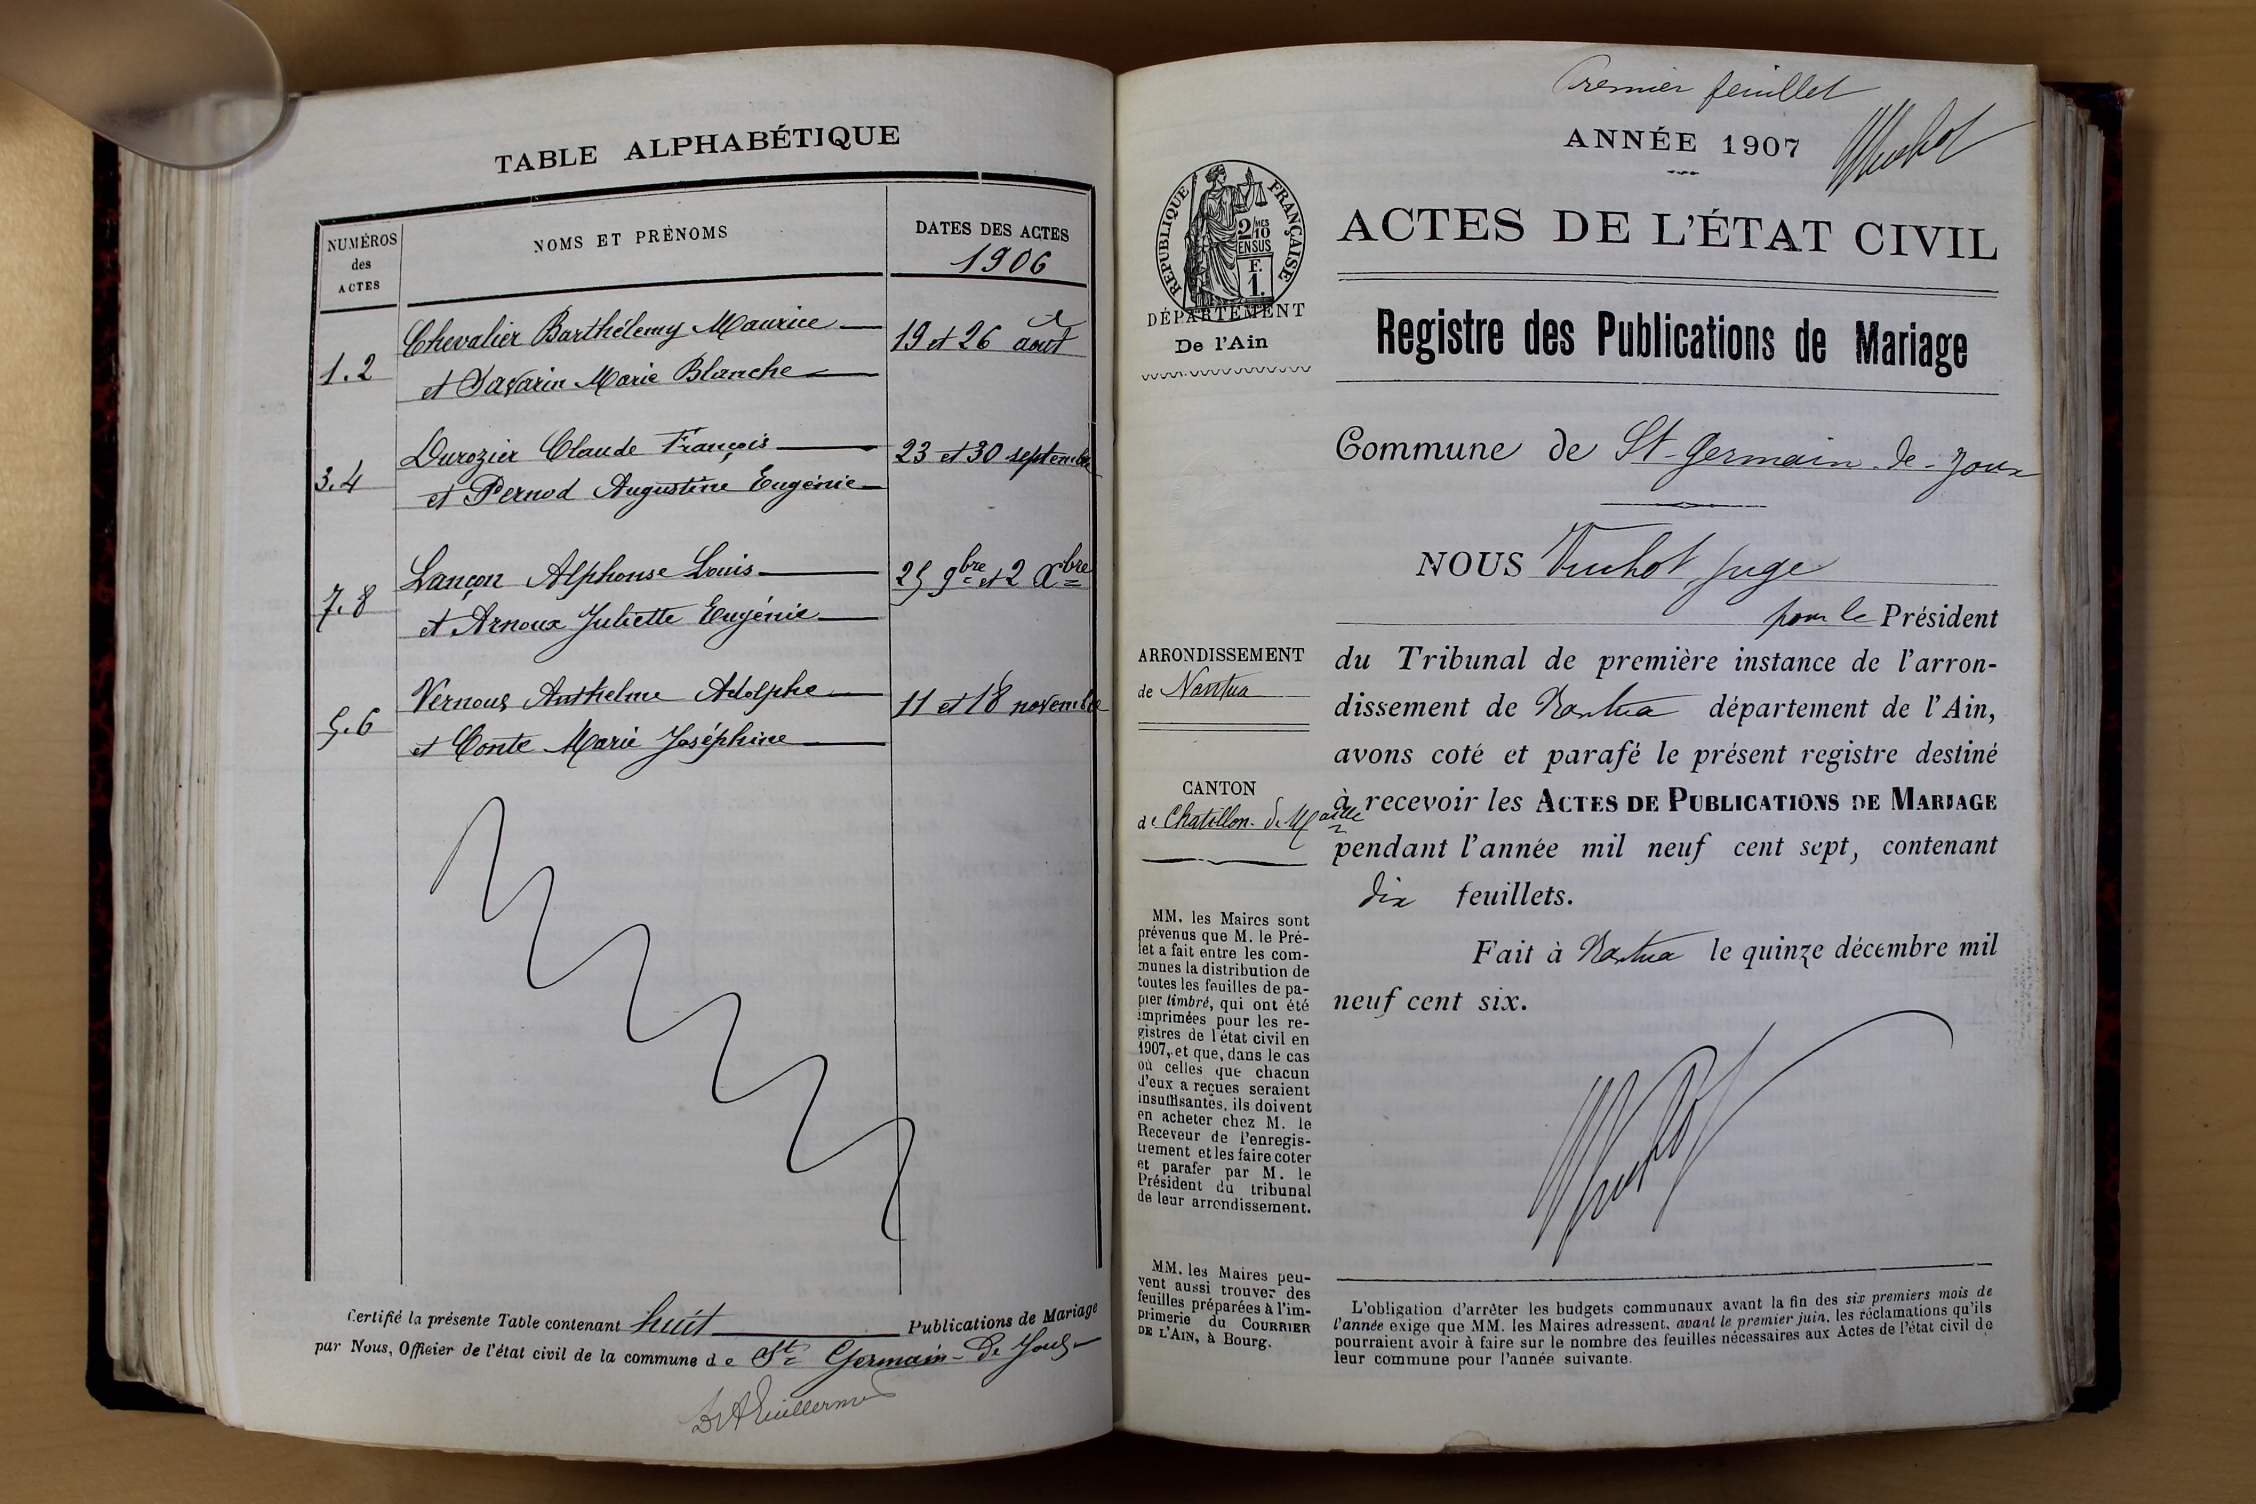 TABLE ALPHABÉTIQUE
NUMÉROS
des
ACTES
NOMS ET PRÉNOMS
DATES DES ACTES
1906
1.2
Chevalier Barthélemy Maurice
et Savarin Marie Blanche
19 et 26 août
3.4
Durozier Claude François
et Pernod Augustine Eugénie
23 et 30 septembre
7.8
Lançon Alphonse Louis
et Arnoux Juliette Eugénie
25 9bre et 2 Xbre
5.6
Vernoux Anthelme Adolphe
et Conte Marie Joséphine
11 et 18 novembre
Certifié la présente Table contenant huit Publications de Mariage
par Nous, Officier de l'état civil de la commune de St Germain-de Joux
Premier feuillet
ANNÉE 1907
ACTES DE L'ÉTAT CIVIL
RÉPUBLIQUE FRANÇAISE
2/10MES
EN SUS
F.
1.
DÉPARTEMENT
De l'Ain
Registre des Publications de Mariage
Commune de St-Germain-de-Joux
NOUS Vuchot, juge
pour le Président
ARRONDISSEMENT
de Nantua
du Tribunal de première instance de l'arron-
dissement de Nantua département de l'Ain,
avons coté et parafé le présent registre destiné
à recevoir les ACTES DE PUBLICATIONS DE MARIAGE
pendant l'année mil neuf cent sept, contenant
dix feuillets.
Fait à Nantua le quinze décembre mil
neuf cent six.
CANTON
de Chatillon-de-Maille
MM. les Maires sont
prévenus que M. le Pré-
fet a fait entre les com-
munes la distribution de
toutes les feuilles de pa-
pier timbré, qui ont été
imprimées pour les re-
gistres de l'état civil en
1907, et que, dans le cas
où celles que chacun
d'eux a reçues seraient
insuffisantes, ils doivent
en acheter chez M. le
Receveur de l'enregis-
trement et les faire coter
et parafer par M. le
Président du tribunal
de leur arrondissement.
MM. les Maires peu-
vent aussi trouver des
feuilles préparées à l'im-
primerie du COURRIER
DE L'AIN, à Bourg.
L'obligation d'arrêter les budgets communaux avant la fin des six premiers mois de
l'année exige que MM. les Maires adressent, avant le premier juin, les réclamations qu'ils
pourraient avoir à faire sur le nombre des feuilles nécessaires aux Actes de l'état civil de
leur commune pour l'année suivante.